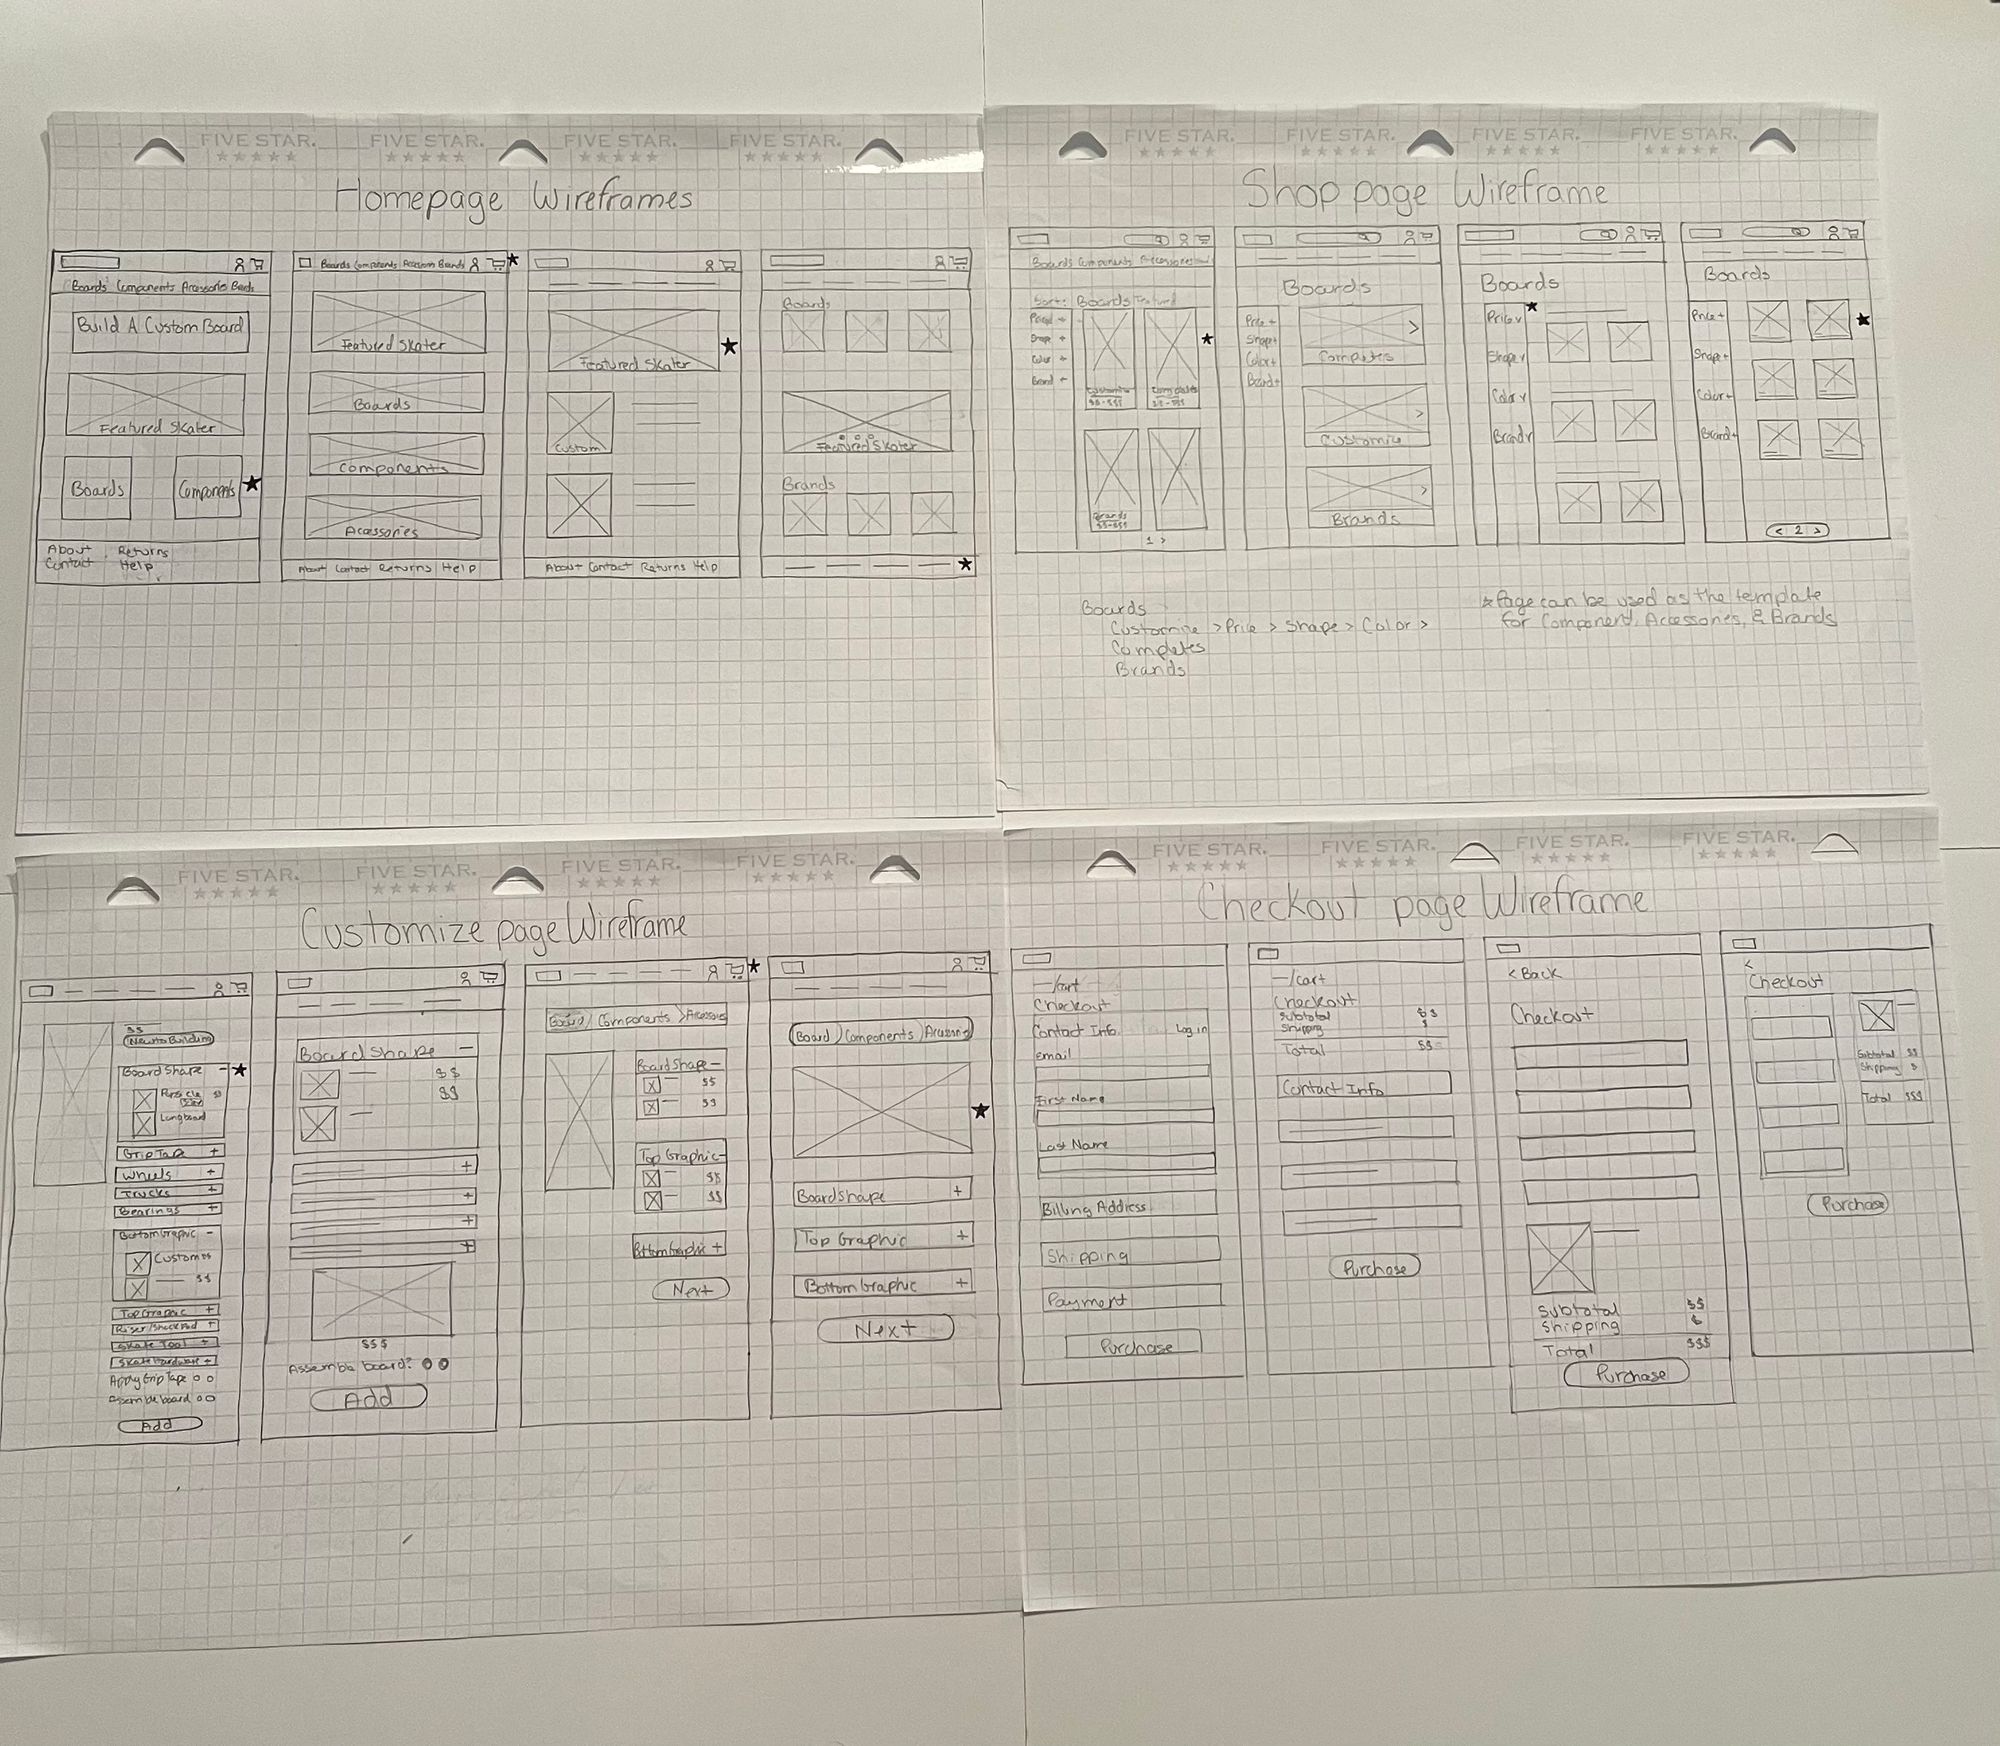 FIVE STAR. FIVE STAR. FIVE STAR. FIVE STAR.
Homepage Wireframes
Boards Components Accessories
Build A Custom Board
Featured Skater
Boards
Components
About Returns
Contact Help
Boards Components Brands
Featured Skater
Boards
Components
Acessories
About Contact Returns Help
Featured Skater
Custom
About Contact Returns Help
Boards
Featured Skater
Brands
FIVE STAR. FIVE STAR. FIVE STAR. FIVE STAR.
Shop page Wireframe
Boards Components Accessories
Sort: Boards Featured
Shape +
Color +
Brand +
Customize
$$-$$$
Completes
$$-$$$
Brands
$$-$$$
1 >
Boards
Price +
Shape +
Color +
Brand +
>
Completes
>
Customize
>
Brands
Boards
Price v
Shape v
Color v
Brand v
Boards
Price +
Shape +
Color +
Brand +
< 2 >
Boards
Customize > Price > Shape > Color >
Completes
Brands
★ Page can be used as the template
for Component, Accessories, & Brands
FIVE STAR. FIVE STAR. FIVE STAR. FIVE STAR.
Customize page Wireframe
$$
New to Building
Board Shape -
Longboard
Grip Tape +
Wheels +
Trucks +
Bearings +
Bottom Graphic -
Custom $$
$$
Top Graphic +
Skate Tool +
Skate Hardware +
Apply Grip Tape o o
Assemble board o o
Add
Board Shape -
$$
$$
+
+
+
+
$$$
Assemble board?
Add
Board / Components > Accessories
Board Shape -
$$
$$
Top Graphic -
$$
$$
Bottom Graphic +
Next
Board ) Components )
Board Shape +
Top Graphic +
Bottom Graphic +
Next
FIVE STAR. FIVE STAR. FIVE STAR. FIVE STAR.
Checkout page Wireframe
—/cart
Checkout
Contact Info. Log in
email
First Name
Last Name
Billing Address
Shipping
Payment
Purchase
—/cart
Checkout
Subtotal $$
Shipping $
Total $$
Contact Info
Purchase
< Back
Checkout
Subtotal $$
Shipping $
Total $$$
Purchase
<
Checkout
Subtotal $$
Shipping $
Total $$$
Purchase